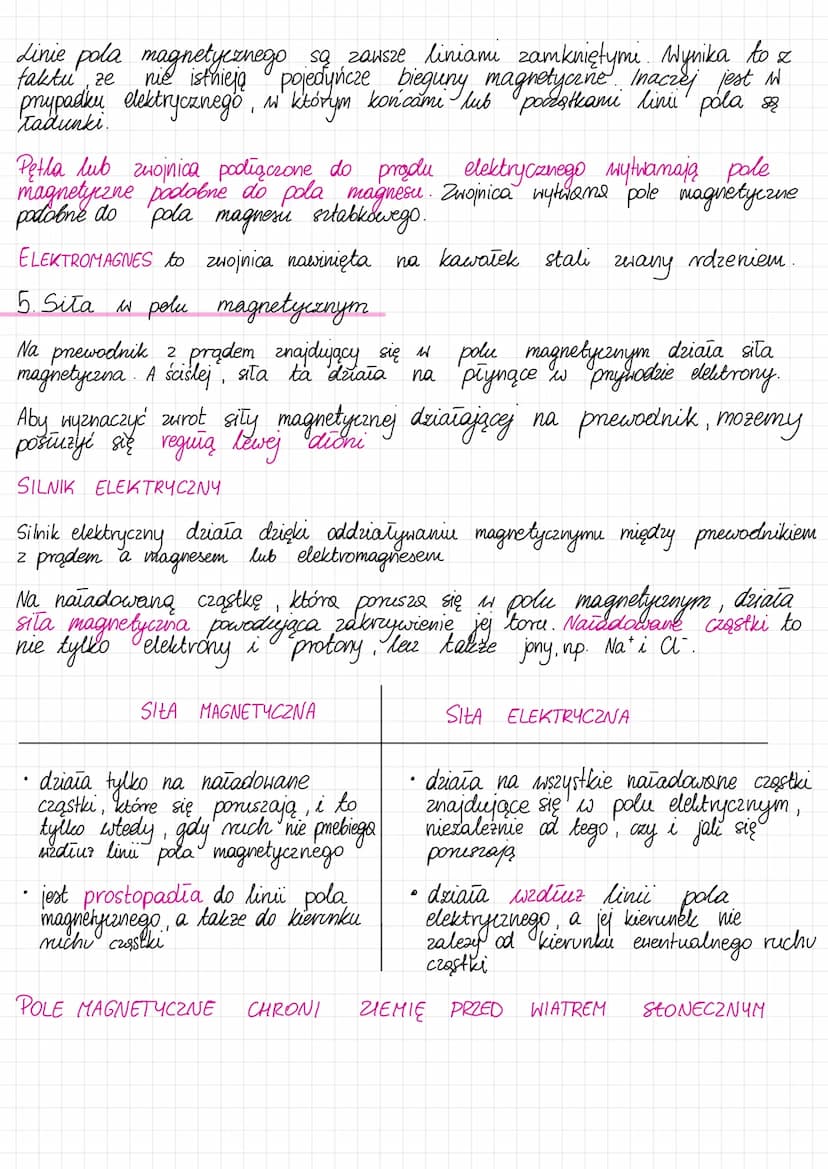 Linie pola magnetycznego są zawsze liniami zamkniętymi. Wynika to z
faktu, że nie istnieją pojedyńcze bieguny magnetyczne. Inaczej jest w
przypadku elektrycznego, w którym końcami lub początkami linii pola są
ładunki.
Pętla lub zwojnica podłączone do prądu elektrycznego wytwarzają pole
magnetyczne podobne do pola magnesu. Zwojnica wytwarza pole magnetyczne
podobne do pola magnesu sztabkowego.
ELEKTROMAGNES to zwojnica nawinięta na kawałek stali zwany rdzeniem.
5. Siła w polu magnetycznym
Na przewodnik z prądem znajdujący się w polu magnetycznym działa siła
magnetyczna. A ściślej, siła ta działa na płynące w przywodzie elektrony.
Aby wyznaczyć zwrot siły magnetycznej działającej na przewodnik, możemy
posłużyć się regułą lewej dłoni
SILNIK ELEKTRYCZNY
Silnik elektryczny działa dzięki oddziaływaniu magnetycznymu między przewodnikiem
z prądem a magnesem lub elektromagnesem
Na naładowaną cząstkę, która porusza się w polu magnetycznym, działa
siła magnetyczna powodująca zakrzywienie jej toru. Naładowane cząstki to
nie tylko elektrony i protony, lecz także jony, np. Na⁺ i Cl⁻.
SIŁA MAGNETYCZNA
• działa tylko na naładowane
cząstki, które się poruszają, i to
tylko wtedy, gdy ruch nie przebiega
wzdłuż linii pola magnetycznego
• jest prostopadła do linii pola
magnetycznego, a także do kierunku
ruchu cząstki
SIŁA ELEKTRYCZNA
• działa na wszystkie naładowane cząstki
znajdujące się w polu elektrycznym,
niezależnie od tego, czy i jak się
poruszają
• działa wzdłuż linii pola
elektrycznego, a jej kierunek nie
zależy od kierunku ewentualnego ruchu
cząstki
POLE MAGNETYCZNE CHRONI ZIEMIĘ PRZED WIATREM SŁONECZNYM